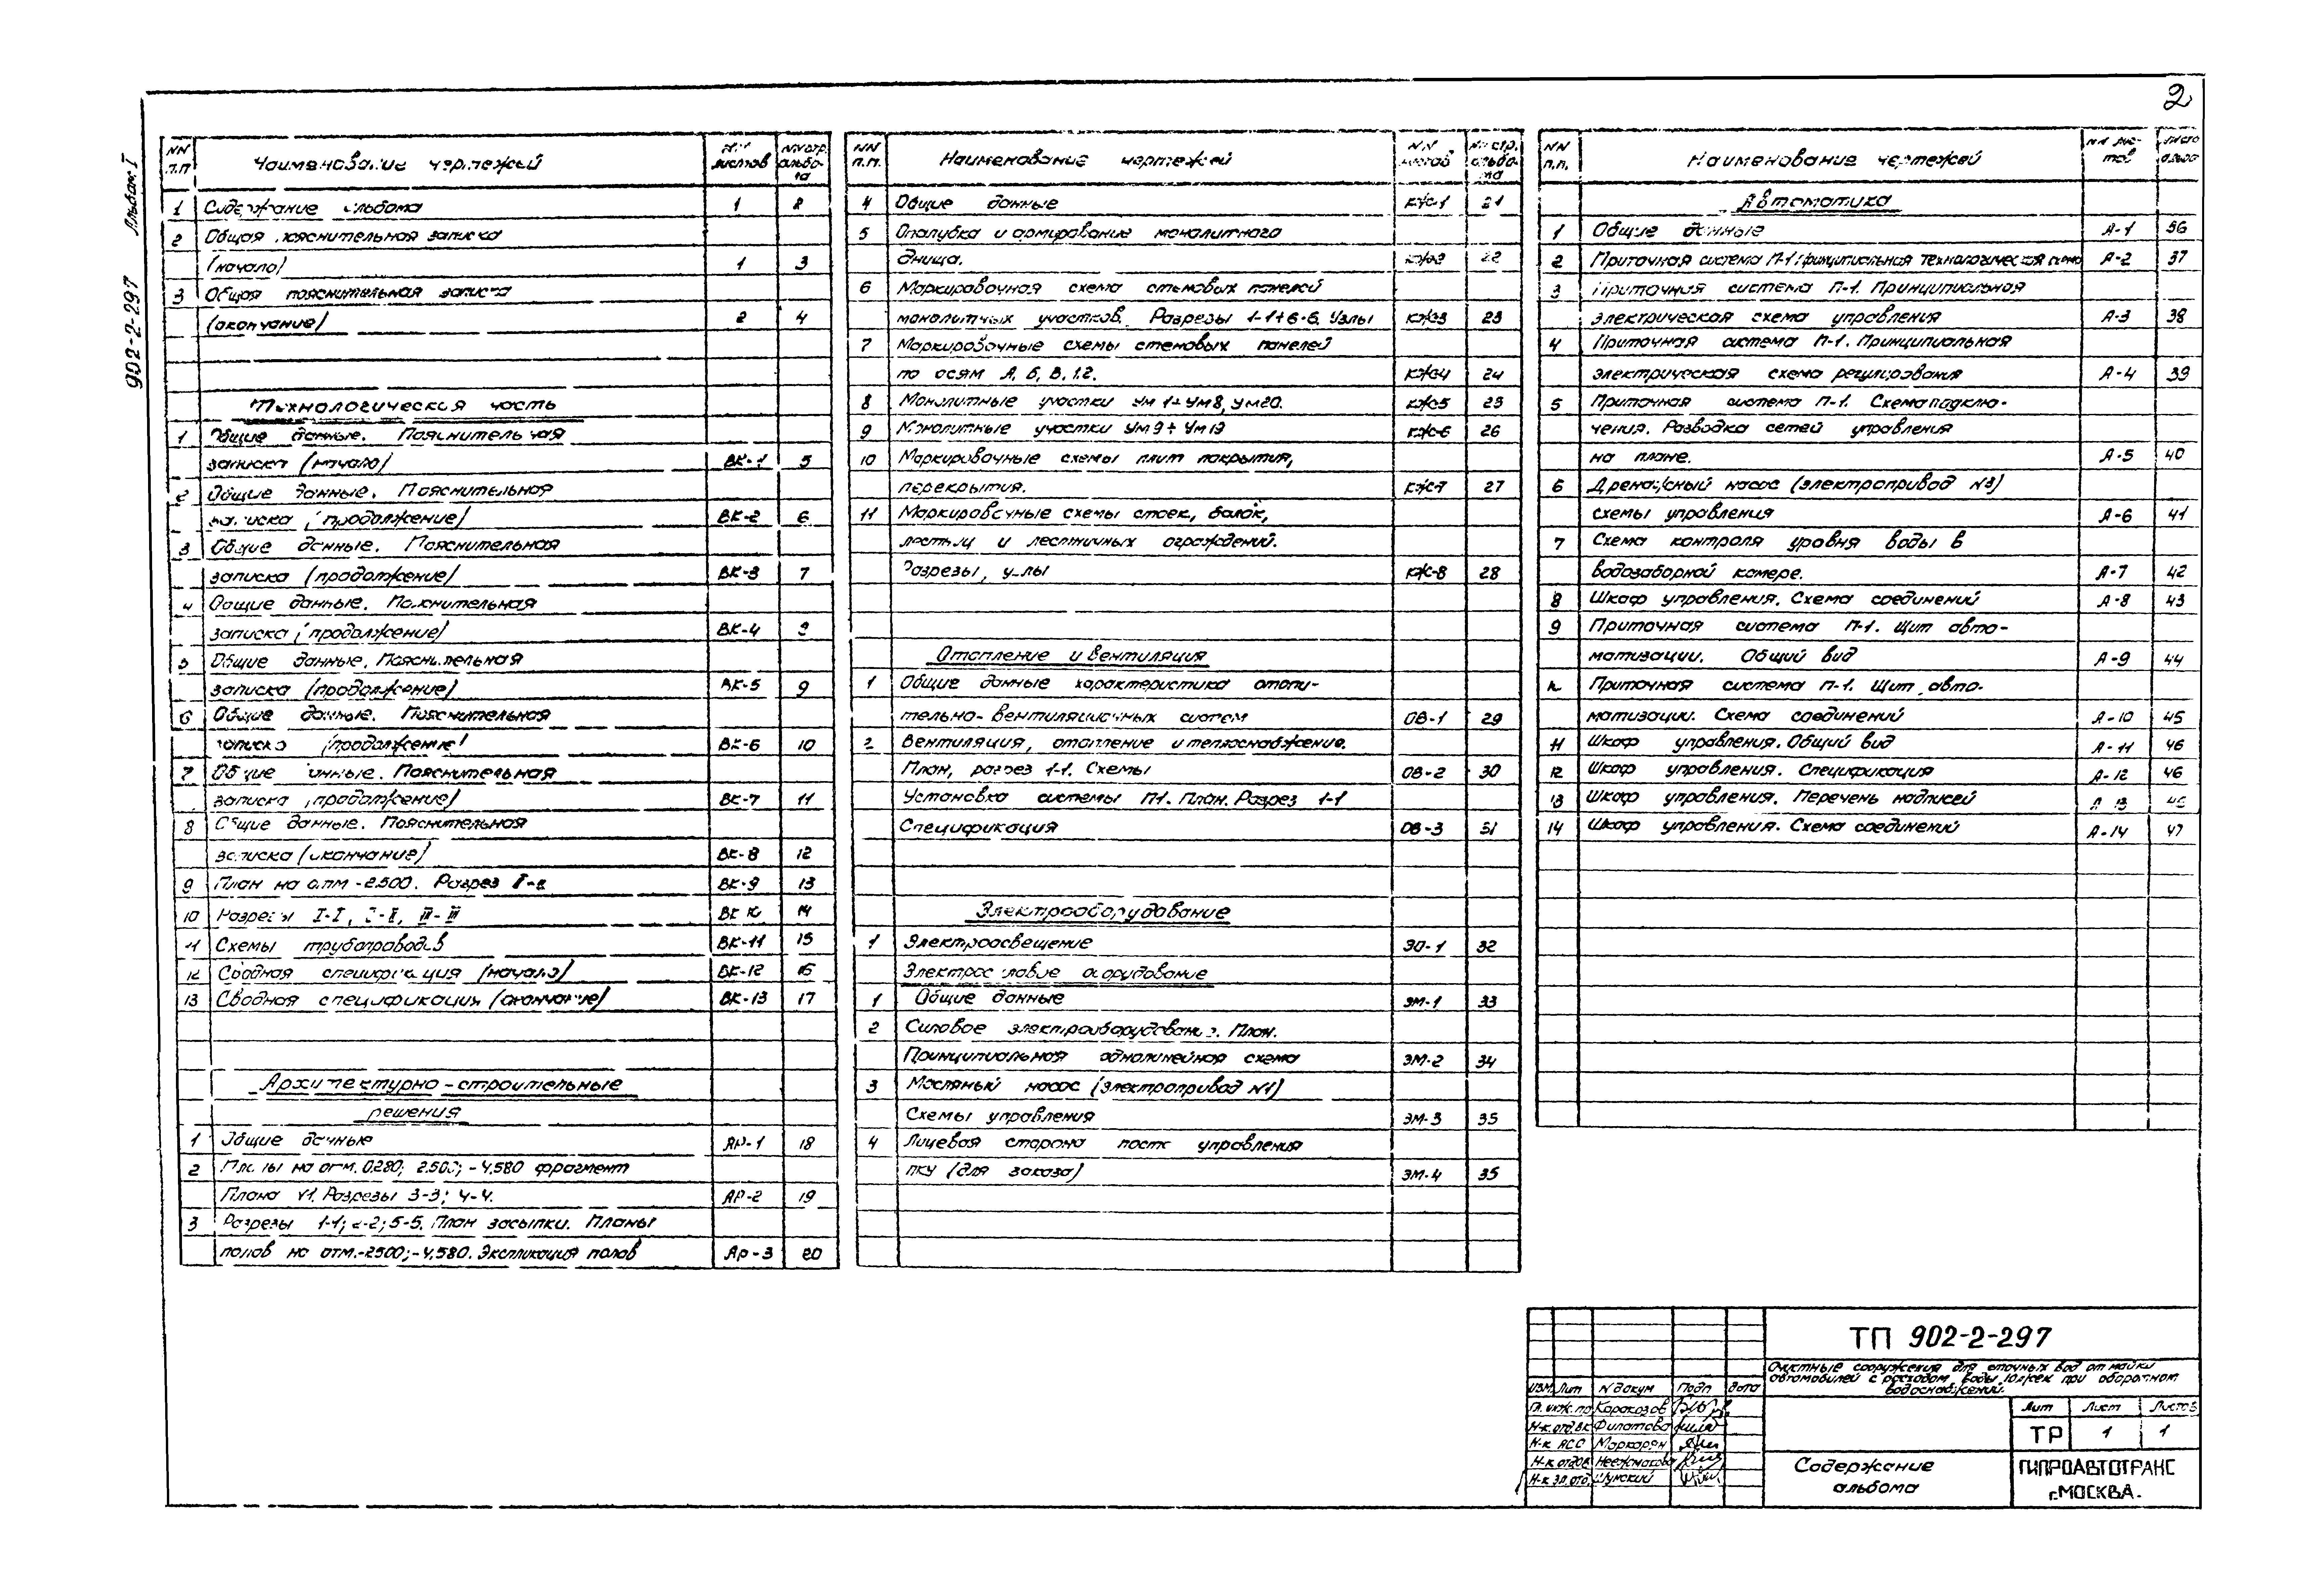 2
902-2-297 Альбом I
NN п.п Наименование чертежей NN листов NN стр. альбома
1 Содержание альбома 1 2
2 Общая пояснительная записка
(начало) 1 3
3 Общая пояснительная записка
(окончание) 2 4
Технологическая часть
1 Общие данные. Пояснительная
записка (начало) ВК-1 5
2 Общие данные. Пояснительная
записка (продолжение) ВК-2 6
3 Общие данные. Пояснительная
записка (продолжение) ВК-3 7
4 Общие данные. Пояснительная
записка (продолжение) ВК-4 8
5 Общие данные. Пояснительная
записка (продолжение) ВК-5 9
6 Общие данные. Пояснительная
записка (продолжение) ВК-6 10
7 Общие данные. Пояснительная
записка (продолжение) ВК-7 11
8 Общие данные. Пояснительная
записка (окончание) ВК-8 12
9 План на отм -2.500. Разрез ВК-9 13
10 Разрезы I-I, II-II, III-III ВК-10 14
11 Схемы трубопроводов ВК-11 15
12 Сводная спецификация (начало) ВК-12 16
13 Сводная спецификация (окончание) ВК-13 17
Архитектурно-строительные
решения
1 Общие данные АР-1 18
2 Планы на отм. 0.280; 2.500; -4.580 фрагмент
Плана №1. Разрезы 3-3; 4-4. АР-2 19
3 Разрезы 1-1; 2-2; 5-5. План засыпки. Планы
полов на отм.-2500; -4.580. Экспликация полов Ар-3 20
NN п.п. Наименование чертежей NN листов NN стр. альбома
4 Общие данные КЖ-1 21
5 Опалубка и армирование монолитного
днища. КЖ-2 22
6 Маркировочная схема стеновых панелей
монолитных участков. Разрезы 1-1÷6-6. Узлы КЖ-3 23
7 Маркировочные схемы стеновых панелей
по осям А, Б, В, 1.2. КЖ-4 24
8 Монолитные участки Ум1÷Ум8, Ум20. КЖ-5 25
9 Монолитные участки Ум9÷Ум19 КЖ-6 26
10 Маркировочные схемы плит покрытия,
перекрытия. КЖ-7 27
11 Маркировочные схемы стоек, балок,
лестниц и лестничных ограждений.
Разрезы, узлы КЖ-8 28
Отопление и вентиляция
1 Общие данные характеристика отопи-
тельно-вентиляционных систем ОВ-1 29
2 Вентиляция, отопление и теплоснабжение.
План, разрез 1-1. Схемы ОВ-2 30
Установка системы П1. План. Разрез 1-1
Спецификация ОВ-3 31
Электрооборудование
1 Электроосвещение ЭО-1 32
Электросиловое оборудование
1 Общие данные ЭМ-1 33
2 Силовое электрооборудование. План.
Принципиальная однолинейная схема ЭМ-2 34
3 Масляный насос (электропривод N1)
Схемы управления ЭМ-3 35
4 Лицевая сторона поста управления
ПКУ (для заказа) ЭМ-4 35
NN п.п. Наименование чертежей NN листов
Автоматика
1 Общие данные А-1 36
2 Приточная система П-1 Принципиальная технологическая схема А-2 37
3 Приточная система П-1. Принципиальная
электрическая схема управления А-3 38
4 Приточная система П-1. Принципиальная
электрическая схема регулирования А-4 39
5 Приточная система П-1. Схема подклю-
чения. Разводка сетей управления
на плане. А-5 40
6 Дренажный насос (электропривод N3)
схемы управления А-6 41
7 Схема контроля уровня воды в
водозаборной камере. А-7 42
8 Шкаф управления. Схема соединений А-8 43
9 Приточная система П-1. Щит авто-
матизации. Общий вид А-9 44
Приточная система П-1. Щит авто-
матизации. Схема соединений А-10 45
11 Шкаф управления. Общий вид А-11 46
12 Шкаф управления. Спецификация А-12 46
13 Шкаф управления. Перечень надписей А-13 46
14 Шкаф управления. Схема соединений А-14 47
ТП 902-2-297
Очистные сооружения для сточных вод от мойки
автомобилей с расходом воды 10л/сек при оборотном
водоснабжении.
Изм Лит N докум Подп Дата
Гл. инж. пр Каракозов
Н-к. отд. ВК Филатова
Н-к АСО Маркарян
Н-к отд ОВ Неежмакова
Н-к эл. отд. Шумский
Лит Лист Листов
ТР 1 1
Содержание
альбома
ГИПРОАВТОТРАНС
г.МОСКВА.